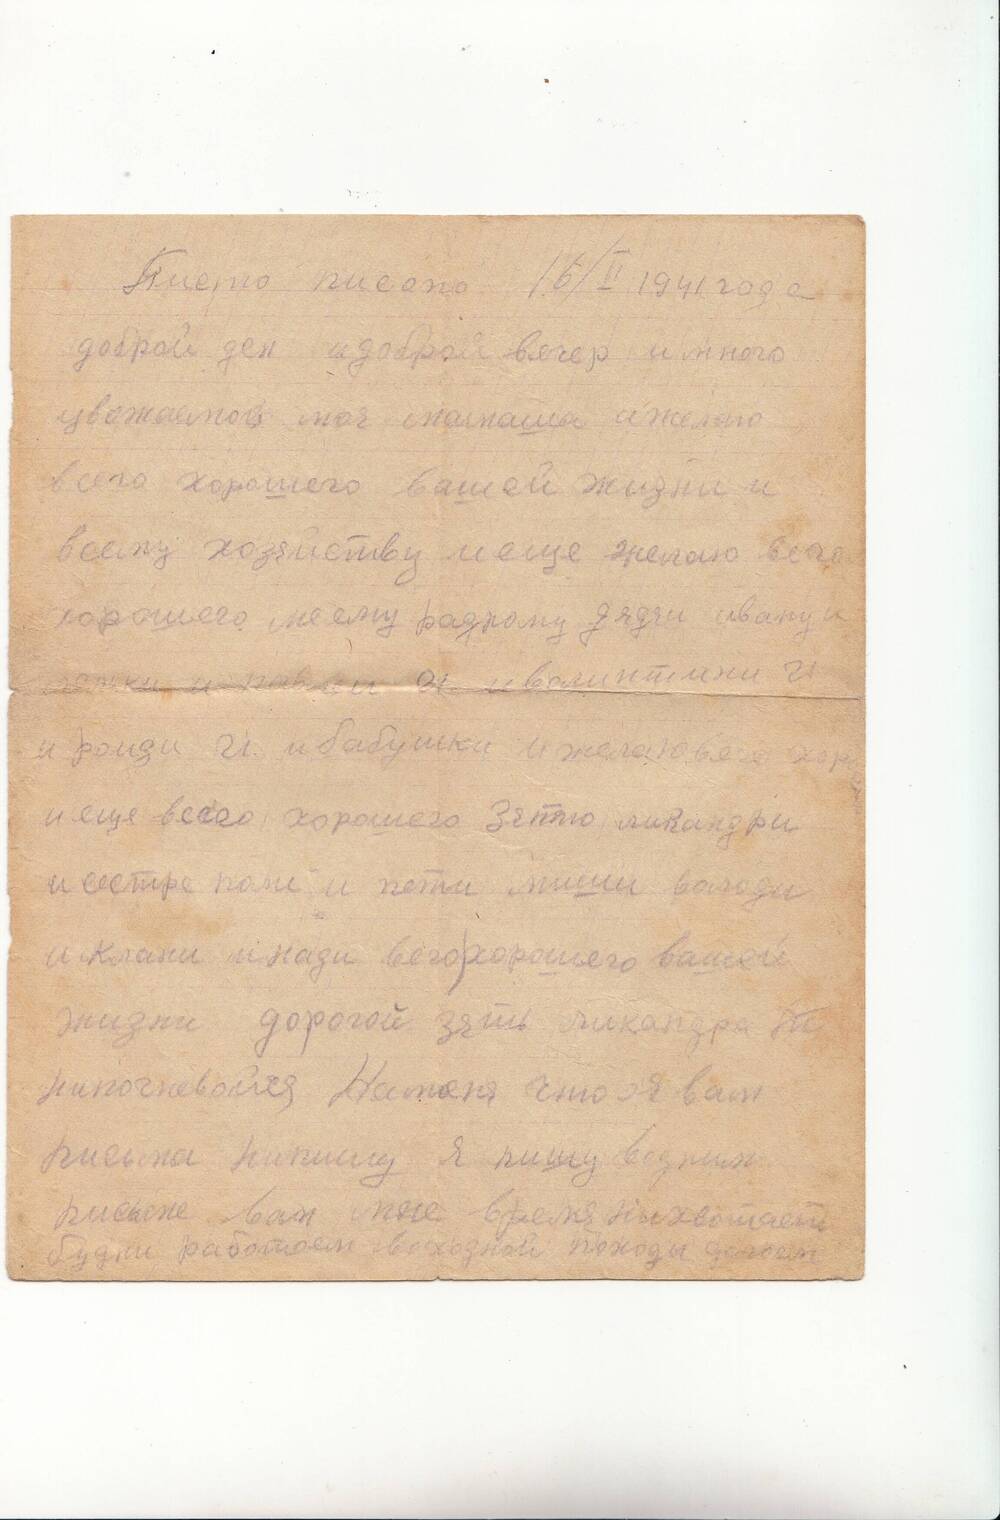 Писмо писано 16/II 1941 года
доброй ден и доброй вечер и много
уважаемоя моя мамаша и желаю
всего хорошего вашей жизни и
всему хозяйству и еще желаю всего
хорошего моему радному дяди ивану и
и валинтини И
и И. и бабушки и желаю всего хор
и еще всего хорошего зятю ликандри
и сестре поли и пети миши валоди
и клани и нади всего хорошего вашей
жизни дорогой зять ликандра
На меня что я вам
писма нипишу я пишу водним
писме вам мне время ныхвотает
будни работаем выходной походы делаем